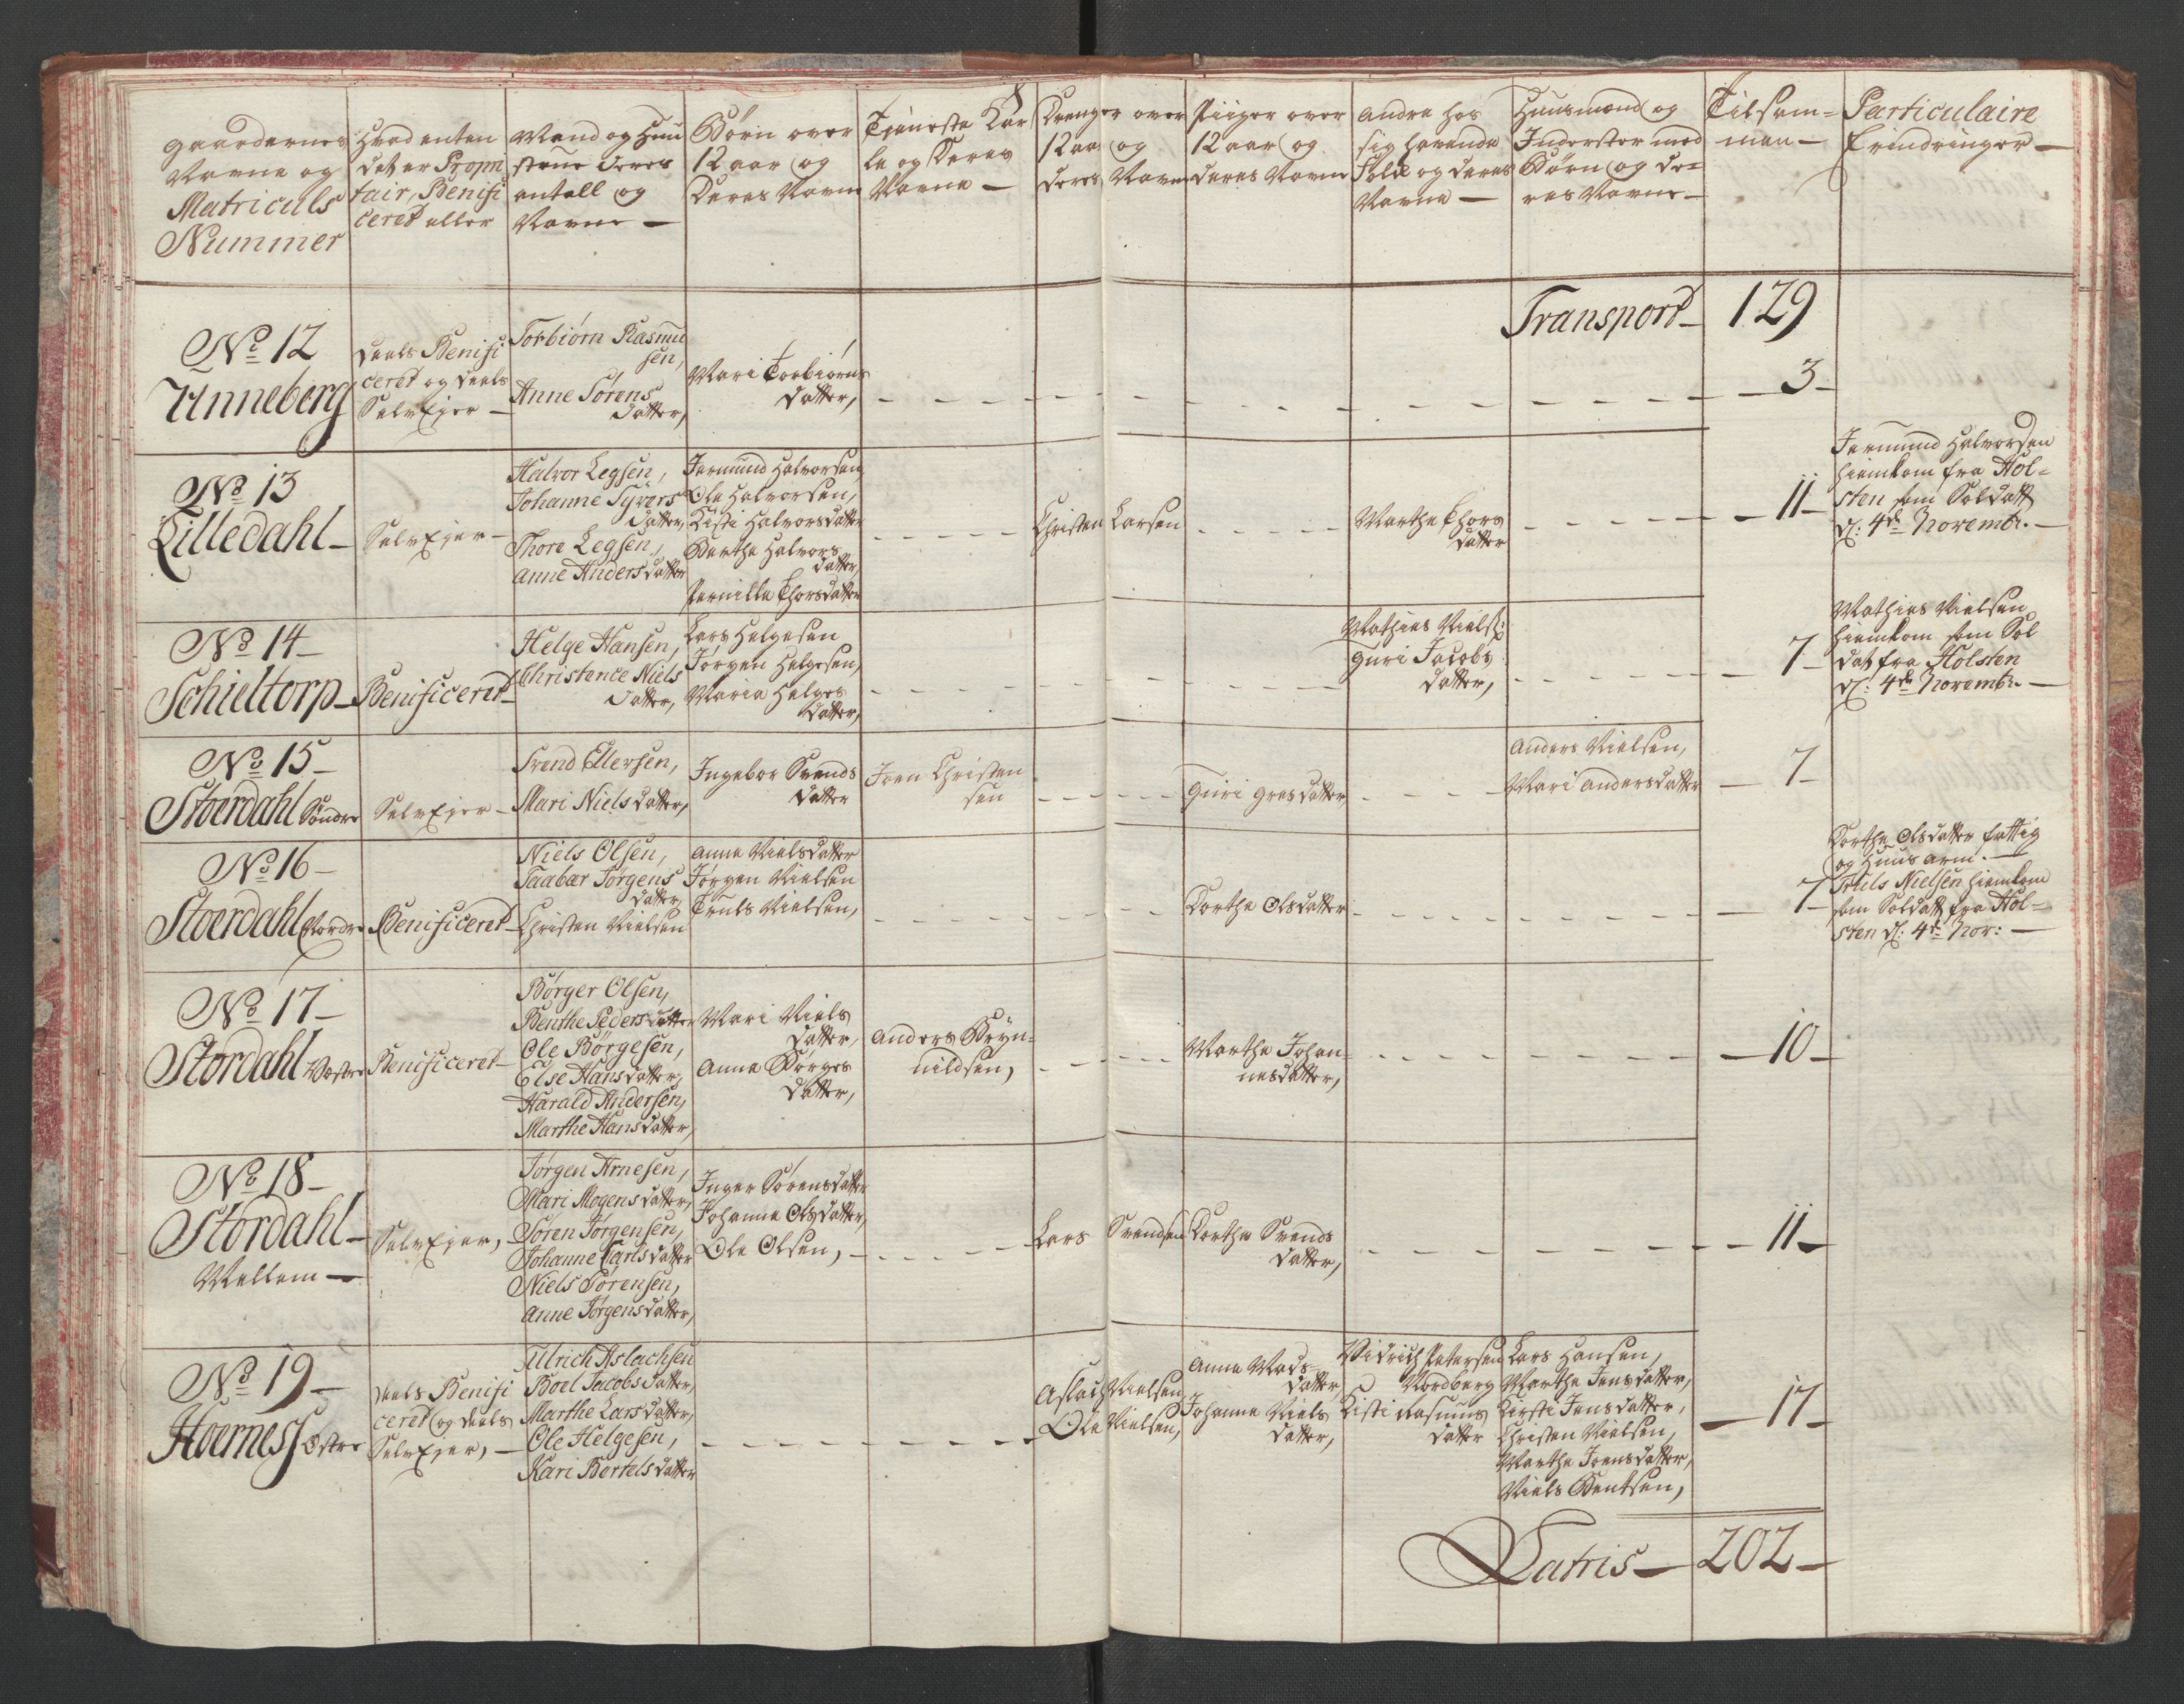 Gaardernes
Navne og
Matriculs
Nummer
Hvad enten
det er Propri
tair, Benifi
ceret eller
Mand og Huu
strue deres
antall og
Navne —
Børn over
12 aar og
deres Navne
Tjeneste Kar
le og deres
Navne —
Drenger over
12 aar og
deres Navne
Piiger over
12 aar og
deres Navne
Andre hos
sig havende
Folk og deres
Navne —
Huusmænd og
Inderster med
Børn og de-
res Navne —
Tilsam-
men —
Particulaire
Erindringer —
Transport — 129
No 12
Unneberg
Deels Benifi
ceret og deels
SelvEjer —
Torbiørn Rasmu
sen,
Anne Sørens
datter,
Mari Torbiørns
datter,
3 —
No 13
Lilledahl —
SelvEjer —
Halvor Legsen,
Johanne Syvers
datter,
Thore Legsen,
Anne Anders datter
Jermund Halvorsen,
Ole Halvorsen,
Kisti Halvorsdatter
Berthe Halvors
datter,
Pernille Thorsdatter
Christen Larsen
Marthe Thors
datter
11 —
Jermund Halvorsen
hiemkom fra Hol-
sten som Soldatt
d: 4de Novembr. —
No 14 —
Schieltorp —
Benificeret —
Helge Hansen,
Christence Niels
datter,
Lars Helgesen
Jørgen Helgesen,
Maria Helges
datter,
Mathias Niels:
Guri Jacobs
datter,
7 —
Mathias Nielsen
hiemkom som Sol
dat fra Holsten
d: 4de Novembr. —
No 15 —
Stoerdahl Søndre
SelvEjer —
Svend Ellersen,
Mari Niels datter,
Ingebor Svends
datter
Joen Christen
sen
Guri Gresdatter
Anders Nielsen,
Mari Andersdatter
7 —
No 16 —
Stoerdahl Nordre
Benificeret —
Niels Olsen,
Taabær Jørgens
datter,
Christen Nielsen
Anne Nielsdatter
Jørgen Nielsen
Truls Nielsen,
Dorthe Olsdatter
7 —
Dorthe Olsdatter fattig
og Huusarm. —
Truls Nielsen hiemkom
som Soldatt fra Hol-
sten d: 4de Nov: —
No 17 —
Stordahl Vestre
Benificeret —
Børger Olsen,
Benthe Peders datter
Ole Børgesen,
Else Hans datter,
Harald Andersen,
Marthe Hans datter,
Mari Niels
datter,
Anne Børges
datter,
Anders Bryn-
nildsen,
Marthe Johan-
nesdatter,
— 10 —
No 18 —
Stordahl —
Mellem —
SelvEjer, —
Jørgen Arnesen,
Mari Mogens datter,
Søren Jørgensen,
Johanne Carls datter
Niels Sørensen,
Anne Jørgens datter,
Inger Sørensdatter
Johanne Olsdatter,
Ole Olsen, —
Lars Svendsen
Dorthe Svends
datter,
— 11 —
No 19 —
Hoerness Østre
Deels Benifi
ceret og deels
SelvEjer, —
Ullrich Aslachsen
Boel Jacobs datter,
Marthe Lars datter,
Ole Helgesen,
Kari Bertels datter
Aslach Nielsen,
Ole Nielsen,
Anne Mads-
datter,
Johanne Niels
datter,
Didrich Petersen
Nordberg
Kisti Rasmus
datter
Lars Hansen,
Marthe Jensdatter,
Kirsti Jensdatter,
Christen Nielsen,
Marthe Joensdatter,
Niels Bentsen,
— 17 —
Latris — 202 —